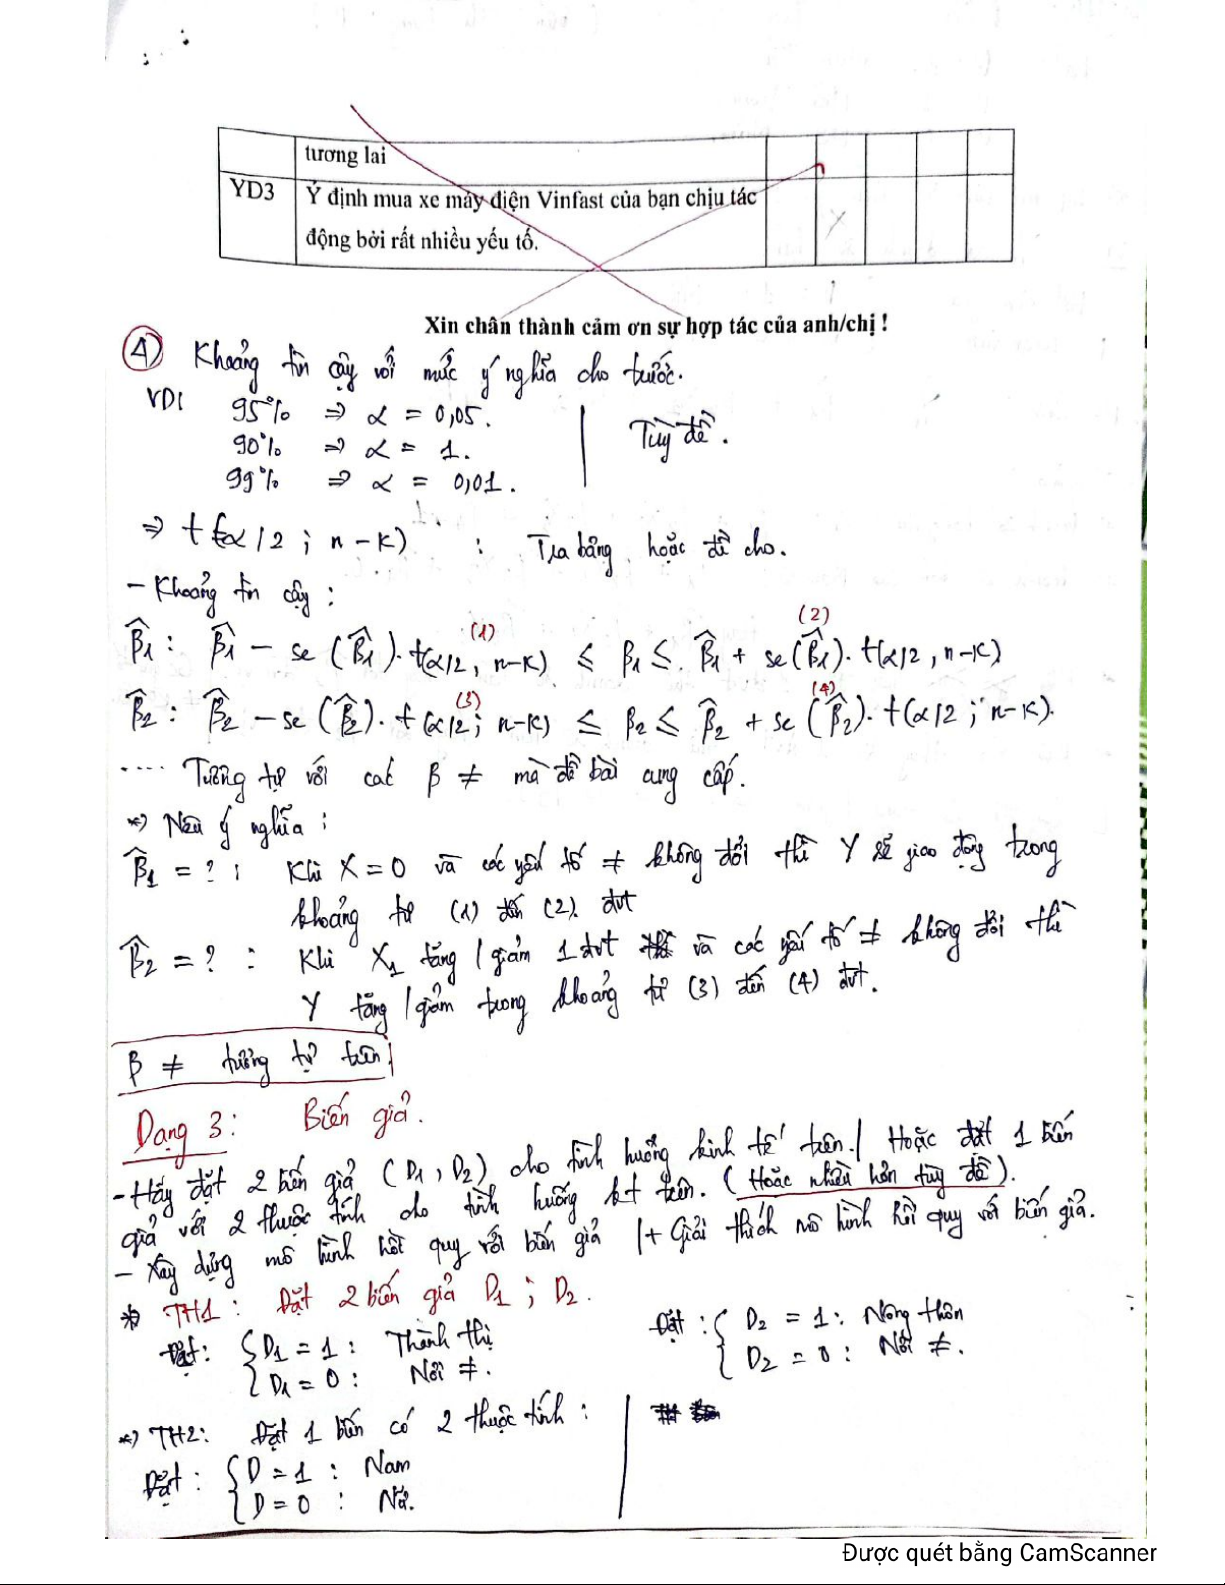 tương lai
YD3 Ý định mua xe máy điện Vinfast của bạn chịu tác
động bởi rất nhiều yếu tố.
Xin chân thành cảm ơn sự hợp tác của anh/chị !
4) Khoảng tin cậy với mức ý nghĩa cho trước.
VD1 95% ⇒ α = 0,05.
90% ⇒ α = 1. Tùy đề.
99% ⇒ α = 0,01.
⇒ t(α/2 ; n-K) : Tra bảng hoặc đề cho.
- Khoảng tin cậy :
(1) (2)
β̂1 : β̂1 - se(β̂1).t(α/2, n-K) ≤ β1 ≤ β̂1 + se(β̂1).t(α/2, n-K)
(3) (4)
β̂2 : β̂2 - se(β̂2).t(α/2; n-K) ≤ β2 ≤ β̂2 + se(β̂2).t(α/2; n-K).
.... Tương tự với các β ≠ mà đề bài cung cấp.
*) Nêu ý nghĩa :
β̂1 = ? : Khi X = 0 và các yếu tố ≠ không đổi thì Y sẽ giao động trong
khoảng từ (1) đến (2) đvt
β̂2 = ? : Khi X1 tăng / giảm 1 đvt và các yếu tố ≠ không đổi thì
Y tăng / giảm trong khoảng từ (3) đến (4) đvt.
β ≠ tương tự trên
Dạng 3: Biến giả.
- Hãy đặt 2 biến giả (D1, D2) cho tình huống kinh tế trên. / Hoặc đặt 1 biến
giả với 2 thuộc tính cho tình huống kt trên. (Hoặc nhiều hơn tùy đề).
- Xây dựng mô hình hồi quy với biến giả /+ Giải thích mô hình hồi quy với biến giả.
* TH1 : Đặt 2 biến giả D1 ; D2.
Đặt: { D1 = 1 : Thành thị Đặt : { D2 = 1 : Nông thôn
D1 = 0 : Nơi ≠. D2 = 0 : Nơi ≠.
*) TH2: Đặt 1 biến có 2 thuộc tính :
Đặt : { D = 1 : Nam
D = 0 : Nữ.
Được quét bằng CamScanner